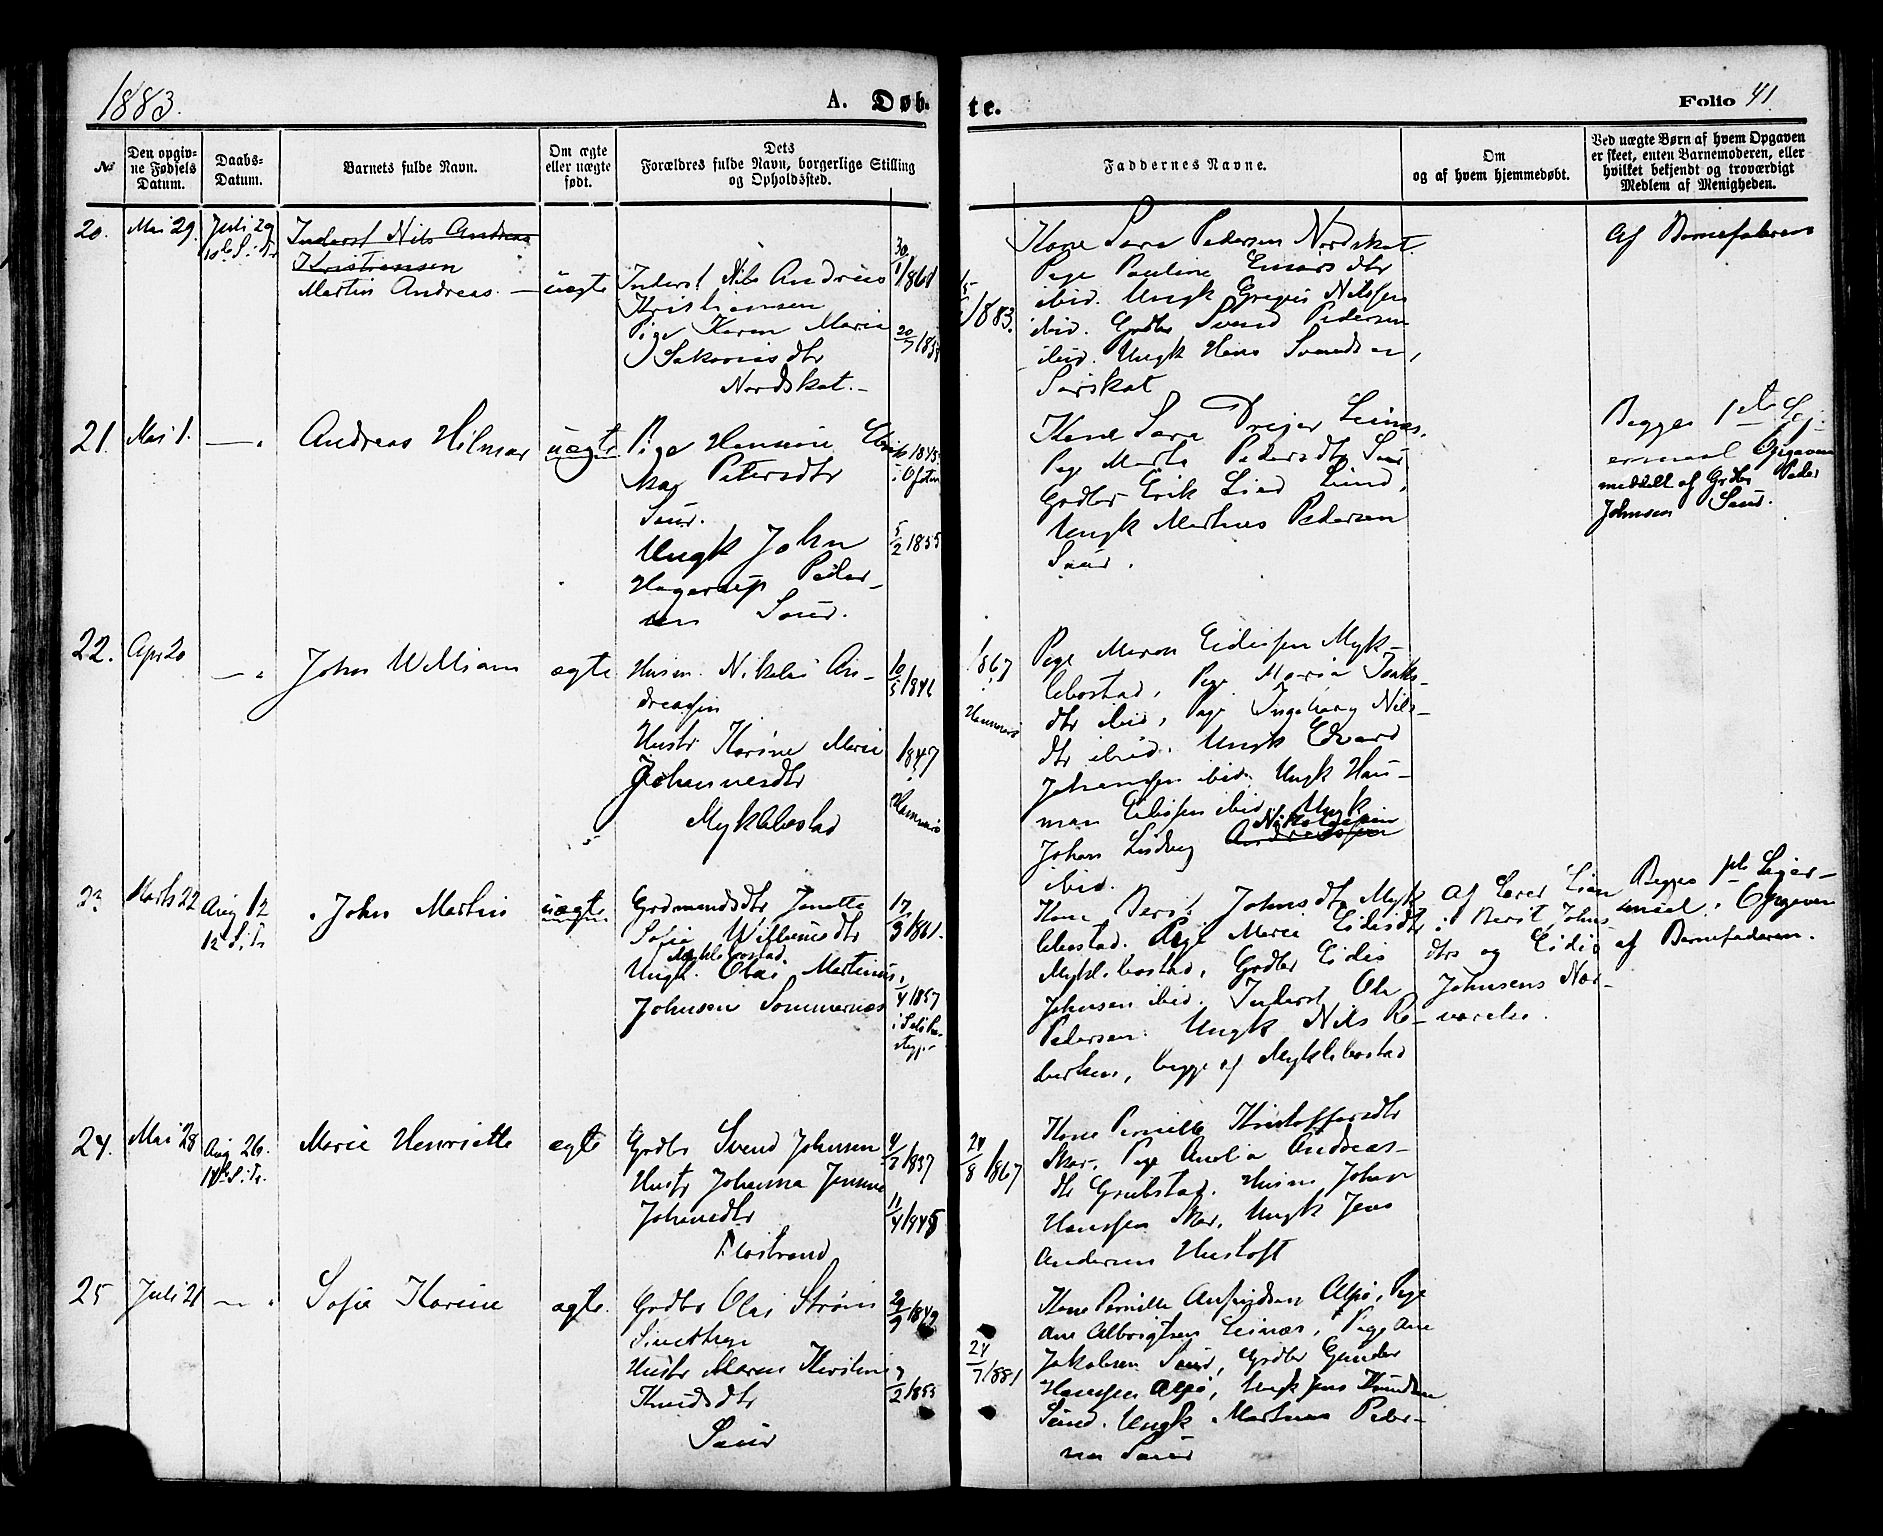 1883.
A. Døb-
te.
Folio 41.
№
Den opgiv-
ne Fødsels
Datum.
Daabs-
Datum.
Barnets fulde Navn.
Om ægte
eller uægte
født.
Dets
Forældres fulde Navn, borgerlige Stilling
og Opholdssted.
Faddernes Navne.
Om
og af hvem hjemmedøbt.
Ved uægte Børn af hvem Opgaven
er skeet, enten Barnemoderen, eller
hvilket bekjendt og troværdigt
Medlem af Menigheden.
20.
Mai 29.
Juli 29
10de S. i. Tr
Inderst Nils Andreas
Kristiansen
Martin Andreas. —
uægte
Inderst Nils Andreas
Kristiansen
Pige Karen Maria
Sakariasdtr
Nordskat. —
30/1 1861
20/7 1858
1883.
Kone Sara Pedersen Nordskat.
Pige Pauline
ibid. Ungk Gregus Nilssen
ibid. Grdbr Svend Pedersen
ibid. Ungk Hans Svendsen,
Sørskat
Af Barnefaderen
21.
Mai 1.
— „
Andreas Hilmar
uægte
Pige Hansine
Petersdtr
Saur.
Ungk John
Hagerup Peder-
sen Saur.
1845
i Ofoten
5/2 1855
Kone Sara Drejer Leines.
Pige Marta Pedersdtr Saur
Grdbr Erik Lind Lund,
Ungk Martinus Pedersen
Saur.
Begges 1ste Lej-
ermaal Opgaven
meddelt af Grdbr Peder
Johnsen Saur.
22.
Apr 20
— „
John William
ægte
Husm. Nikolai An-
dreassen
Hustr Karine Marie
Johannesdtr
Myklebostad
10/5 1841
1847
Hammerø
1867
Hammerø
Pige Maren Eidissen Myk-
lebostad, Pige Maria Isaks-
dtr ibid, Pige Ingeborg Nils-
dtr ibid. Ungk Edvard
Johansen ibid. Ungk Hans-
man Eidissen ibid. Ungk
Johan Ludvig Andreassen
Nikolaisen
ibid.
23
Marts 22
Aug 12
12 S. i. Tr.
John Martin
uægte
Grdmandsdtr Janetta
Sofie Wilhelmsdtr
Myklebostad
Ungk. Olai Martinus
Johnsen Sommernes
17/3 1861.
/4 1857
Kone Berit Johnsdtr Myk-
lebostad. Pige Marie Eidisdtr
Myklebostad, Grdbr Eidis
Johnsen ibid. Inderst Ole
Pedersen. Ungk Nils Re-
berksen, begge af Myklebostad
Af Lærer Lien
i Berit Johns-
dtrs og Eidis
Johnsens Nær-
værelse.
Begges 1ste Lejer-
maal. Opgaven
af Barnefaderen.
24.
Mai 28
Aug 26.
14de S. i. Tr.
Marie Henriette
ægte
Grdbr Svend Johnsen
Hustr Johanna
Johnsdtr
Flostrand
4/7 1837
11/4 1845
24/8 1867
Kone Pernille Kristoffersdtr
Skar, Pige Anelia Andreas-
dtr Grubstad. Husm Johan
Hanssen Skar, Ungk Jens
Andersen Hustoft
25
Juli 21
— „
Sofie Karine
ægte.
Grdbr Olai Strøm
Sivertsen
Hustr Maren Kirstine
Knudsdtr
Saur
29/9 1842
7/2 1853
24/7 1881
Kone Pernille Arntzen Alsø, Pige
Ane Albrigtsen Leines, Pige Ane
Jakobsen Saur, Grdbr Gunder
Hanssen Alsø, Ungk Jens Knudsen
Saur. Ungk Martinus Peder-
sen Saur